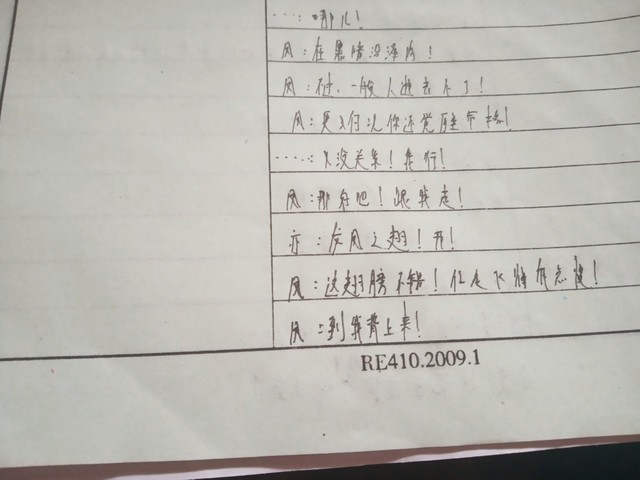 …:哪儿!
风:在黑暗沼泽内!
风:不过,一般人进去不了!
风:更何况你还觉
……:没关系!我行!
风:那好吧!跟我走!
亦:疾风之翅!开!
风:这翅膀不错!但是飞
风:到我背上来!
RE410.2009.1